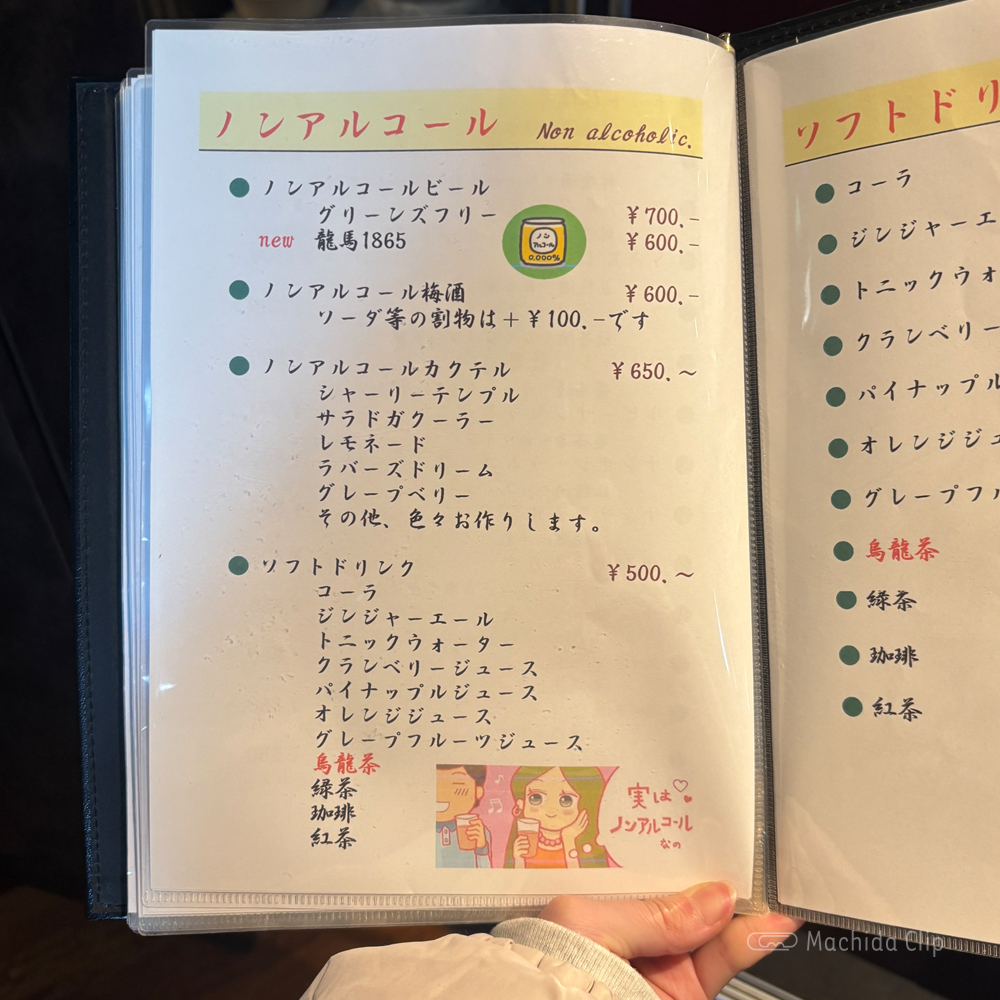 ノンアルコール Non alcoholic.
●ノンアルコールビール
グリーンズフリー ¥700.-
new 龍馬1865 ¥600.-
ノン
アルコール
0.000%
●ノンアルコール梅酒 ¥600.-
ソーダ等の割物は+¥100.-です
●ノンアルコールカクテル ¥650.~
シャーリーテンプル
サラトガクーラー
レモネード
ラバーズドリーム
グレープベリー
その他、色々お作りします。
●ソフトドリンク ¥500.~
コーラ
ジンジャーエール
トニックウォーター
クランベリージュース
パイナップルジュース
オレンジジュース
グレープフルーツジュース
烏龍茶
緑茶
珈琲
紅茶
実は♡
ノンアルコール
なの
ソフトドリ
●コーラ
●ジンジャーエ
●トニックウォ
●クランベリー
●パイナップル
●オレンジジュ
●グレープフル
●烏龍茶
●緑茶
●珈琲
●紅茶
Machida Clip